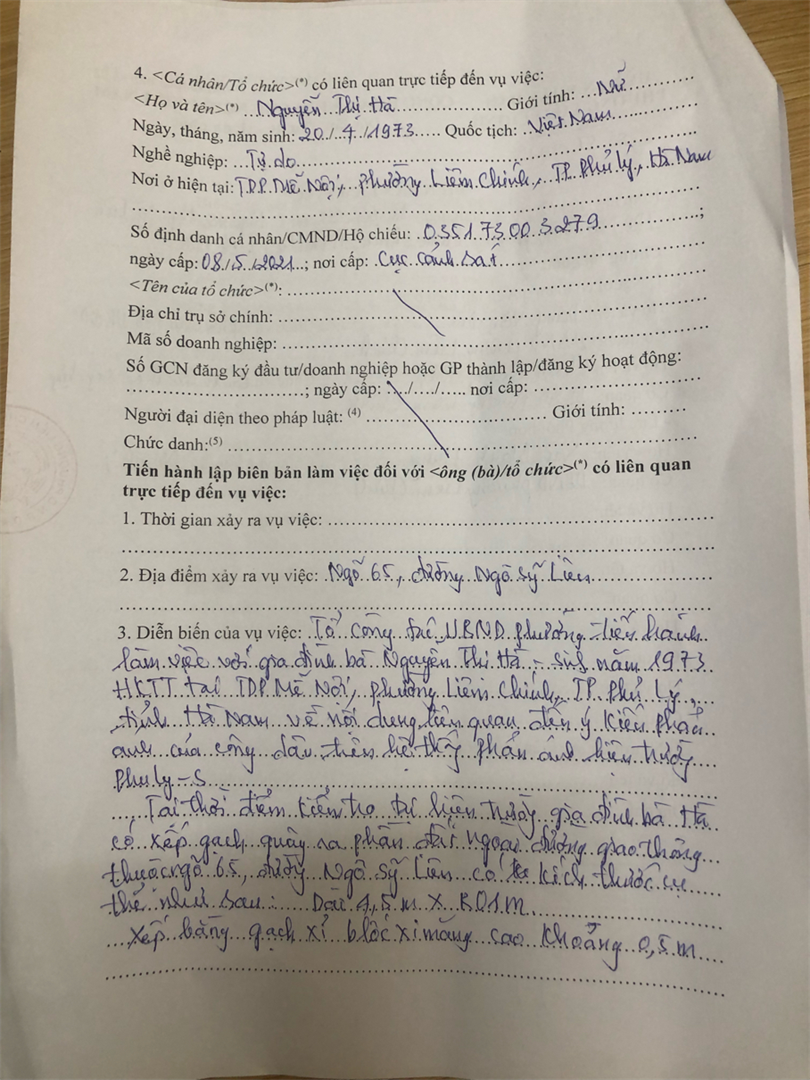 4. <Cá nhân/Tổ chức>(*) có liên quan trực tiếp đến vụ việc:
<Họ và tên>(*) ...Nguyễn Thị Hà.................... Giới tính: ...Nữ............
Ngày, tháng, năm sinh: 20../..4../1973..... Quốc tịch: .Việt Nam..............
Nghề nghiệp: ...Tự do..............................
Nơi ở hiện tại: TDP Mễ Nội, phường Liêm Chính, TP. Phủ Lý, Hà Nam
..............................
Số định danh cá nhân/CMND/Hộ chiếu: .0351 73 00 3 279....................;
ngày cấp: 08/5/2021..; nơi cấp: .Cục cảnh sát..............................
<Tên của tổ chức>(*): ..............................
Địa chỉ trụ sở chính: ..............................
Mã số doanh nghiệp: ..............................
Số GCN đăng ký đầu tư/doanh nghiệp hoặc GP thành lập/đăng ký hoạt động:
..............................; ngày cấp: ..../..../..... nơi cấp: ..............................
Người đại diện theo pháp luật: (4) .............................. Giới tính: .........
Chức danh:(5) ..............................
Tiến hành lập biên bản làm việc đối với <ông (bà)/tổ chức>(*) có liên quan
trực tiếp đến vụ việc:
1. Thời gian xảy ra vụ việc: ..............................
..............................
2. Địa điểm xảy ra vụ việc: .Ngõ 65, đường Ngô Sỹ Liên....................
..............................
3. Diễn biến của vụ việc: ..Tổ công tác UBND phường tiến hành
làm việc với gia đình bà Nguyễn Thị Hà - sinh năm 1973
HKTT tại TDP Mễ Nội, phường Liêm Chính, TP. Phủ Lý,
tỉnh Hà Nam về nội dung liên quan đến ý kiến phản
ánh của công dân trên hệ thống phản ánh hiện trường
Phủ Lý - S..............................
.....Tại thời điểm kiểm tra tại hiện trường gia đình bà Hà
có xếp gạch quây ra phần đất ngoài đường giao thông
thuộc ngõ 65, đường Ngô Sỹ Liên có kích thước cụ
thể như sau: Dài 4,5 m x R01m..............................
...Xếp bằng gạch xỉ blốc xi măng cao khoảng 0,5 m....
..............................